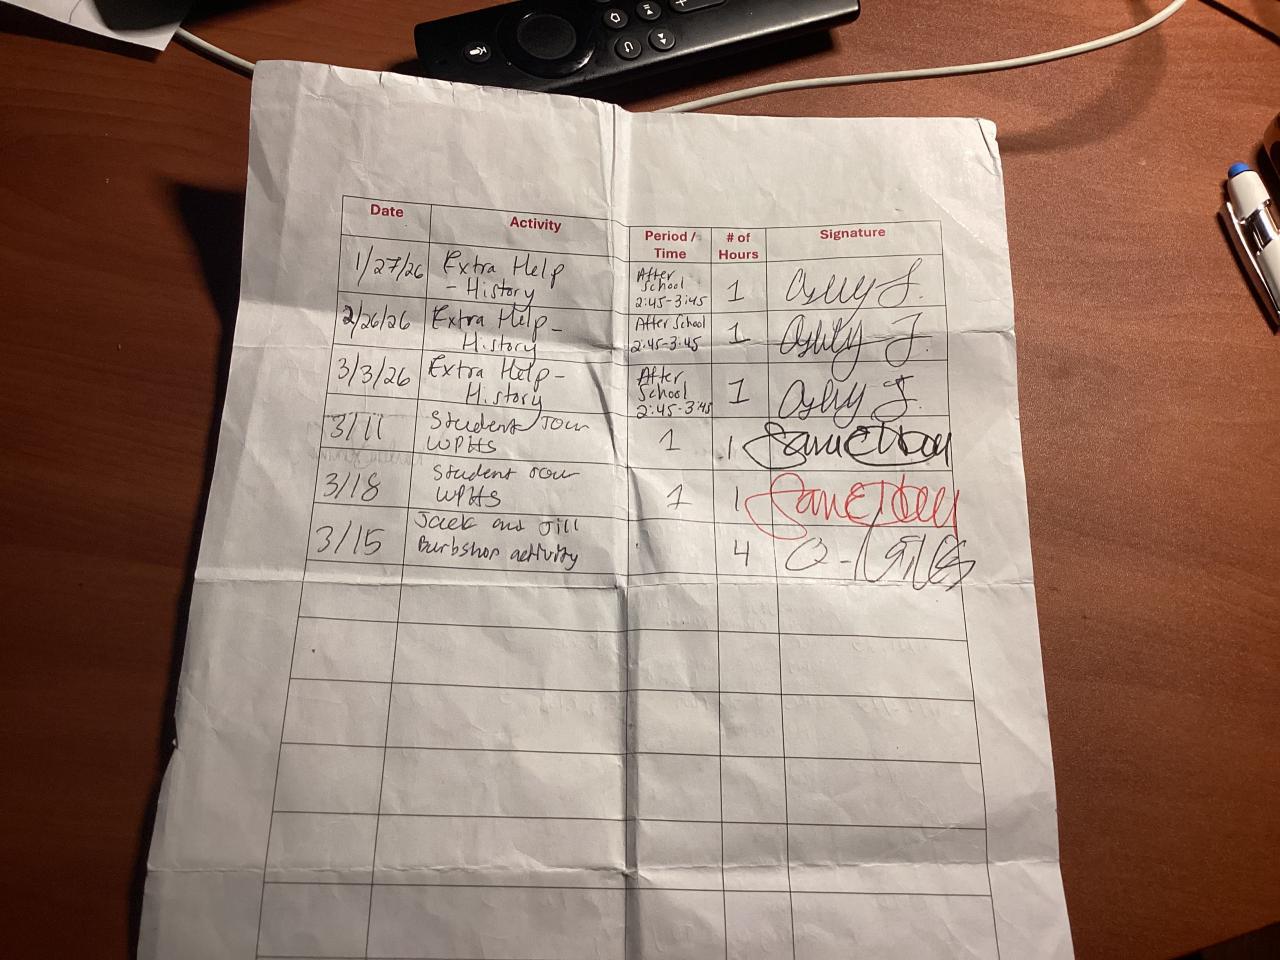 Date Activity Period / Time # of Hours Signature
1/27/26 Extra Help - History After School 2:45-3:45 1
2/26/26 Extra Help - History After School 2:45-3:45 1
3/3/26 Extra Help - History After School 2:45-3:45 1
3/11 Student Tour WPHS 1 1
3/18 Student Tour WPHS 1 1
3/15 Jack and Jill Barbshop activity 4